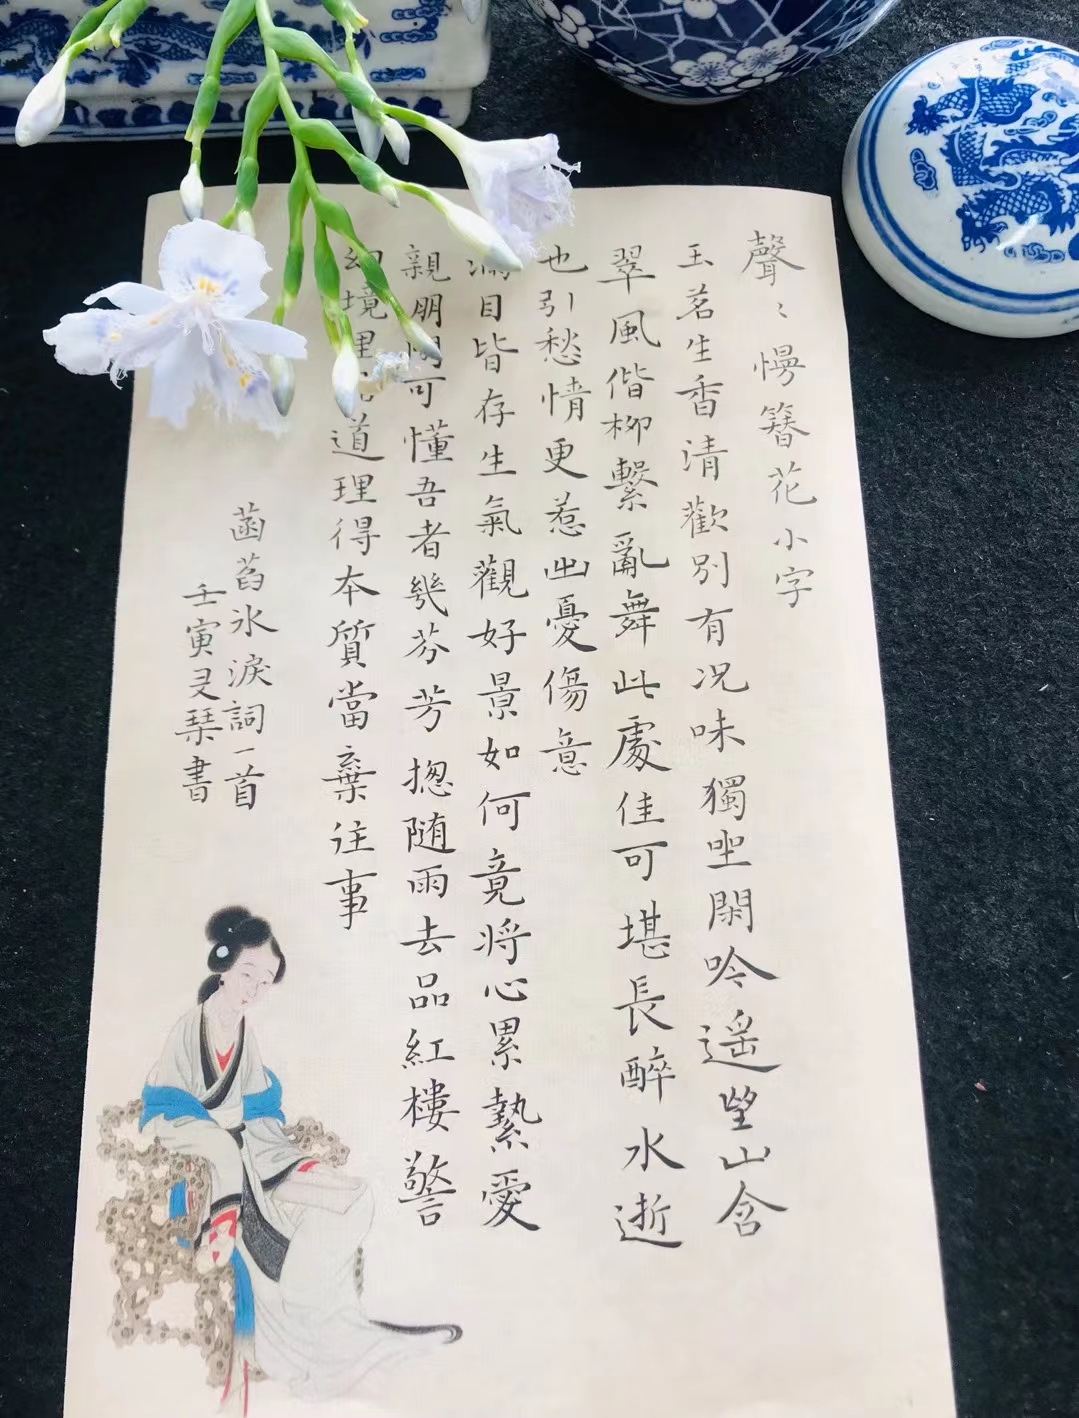 聲〻慢簪花小字
玉茗生香清歡別有況味獨坐閑吟遥望山含
翠風偕柳繫亂舞此處佳可堪長醉水逝
也引愁情更惹出憂傷意
滿目皆存生氣觀好景如何竟將心累縶愛
親朋間可懂吾者幾芬芳揔随雨去品紅樓警
幻境里道理得本質當棄往事
菡萏冰淚詞一首
壬寅旻琹書